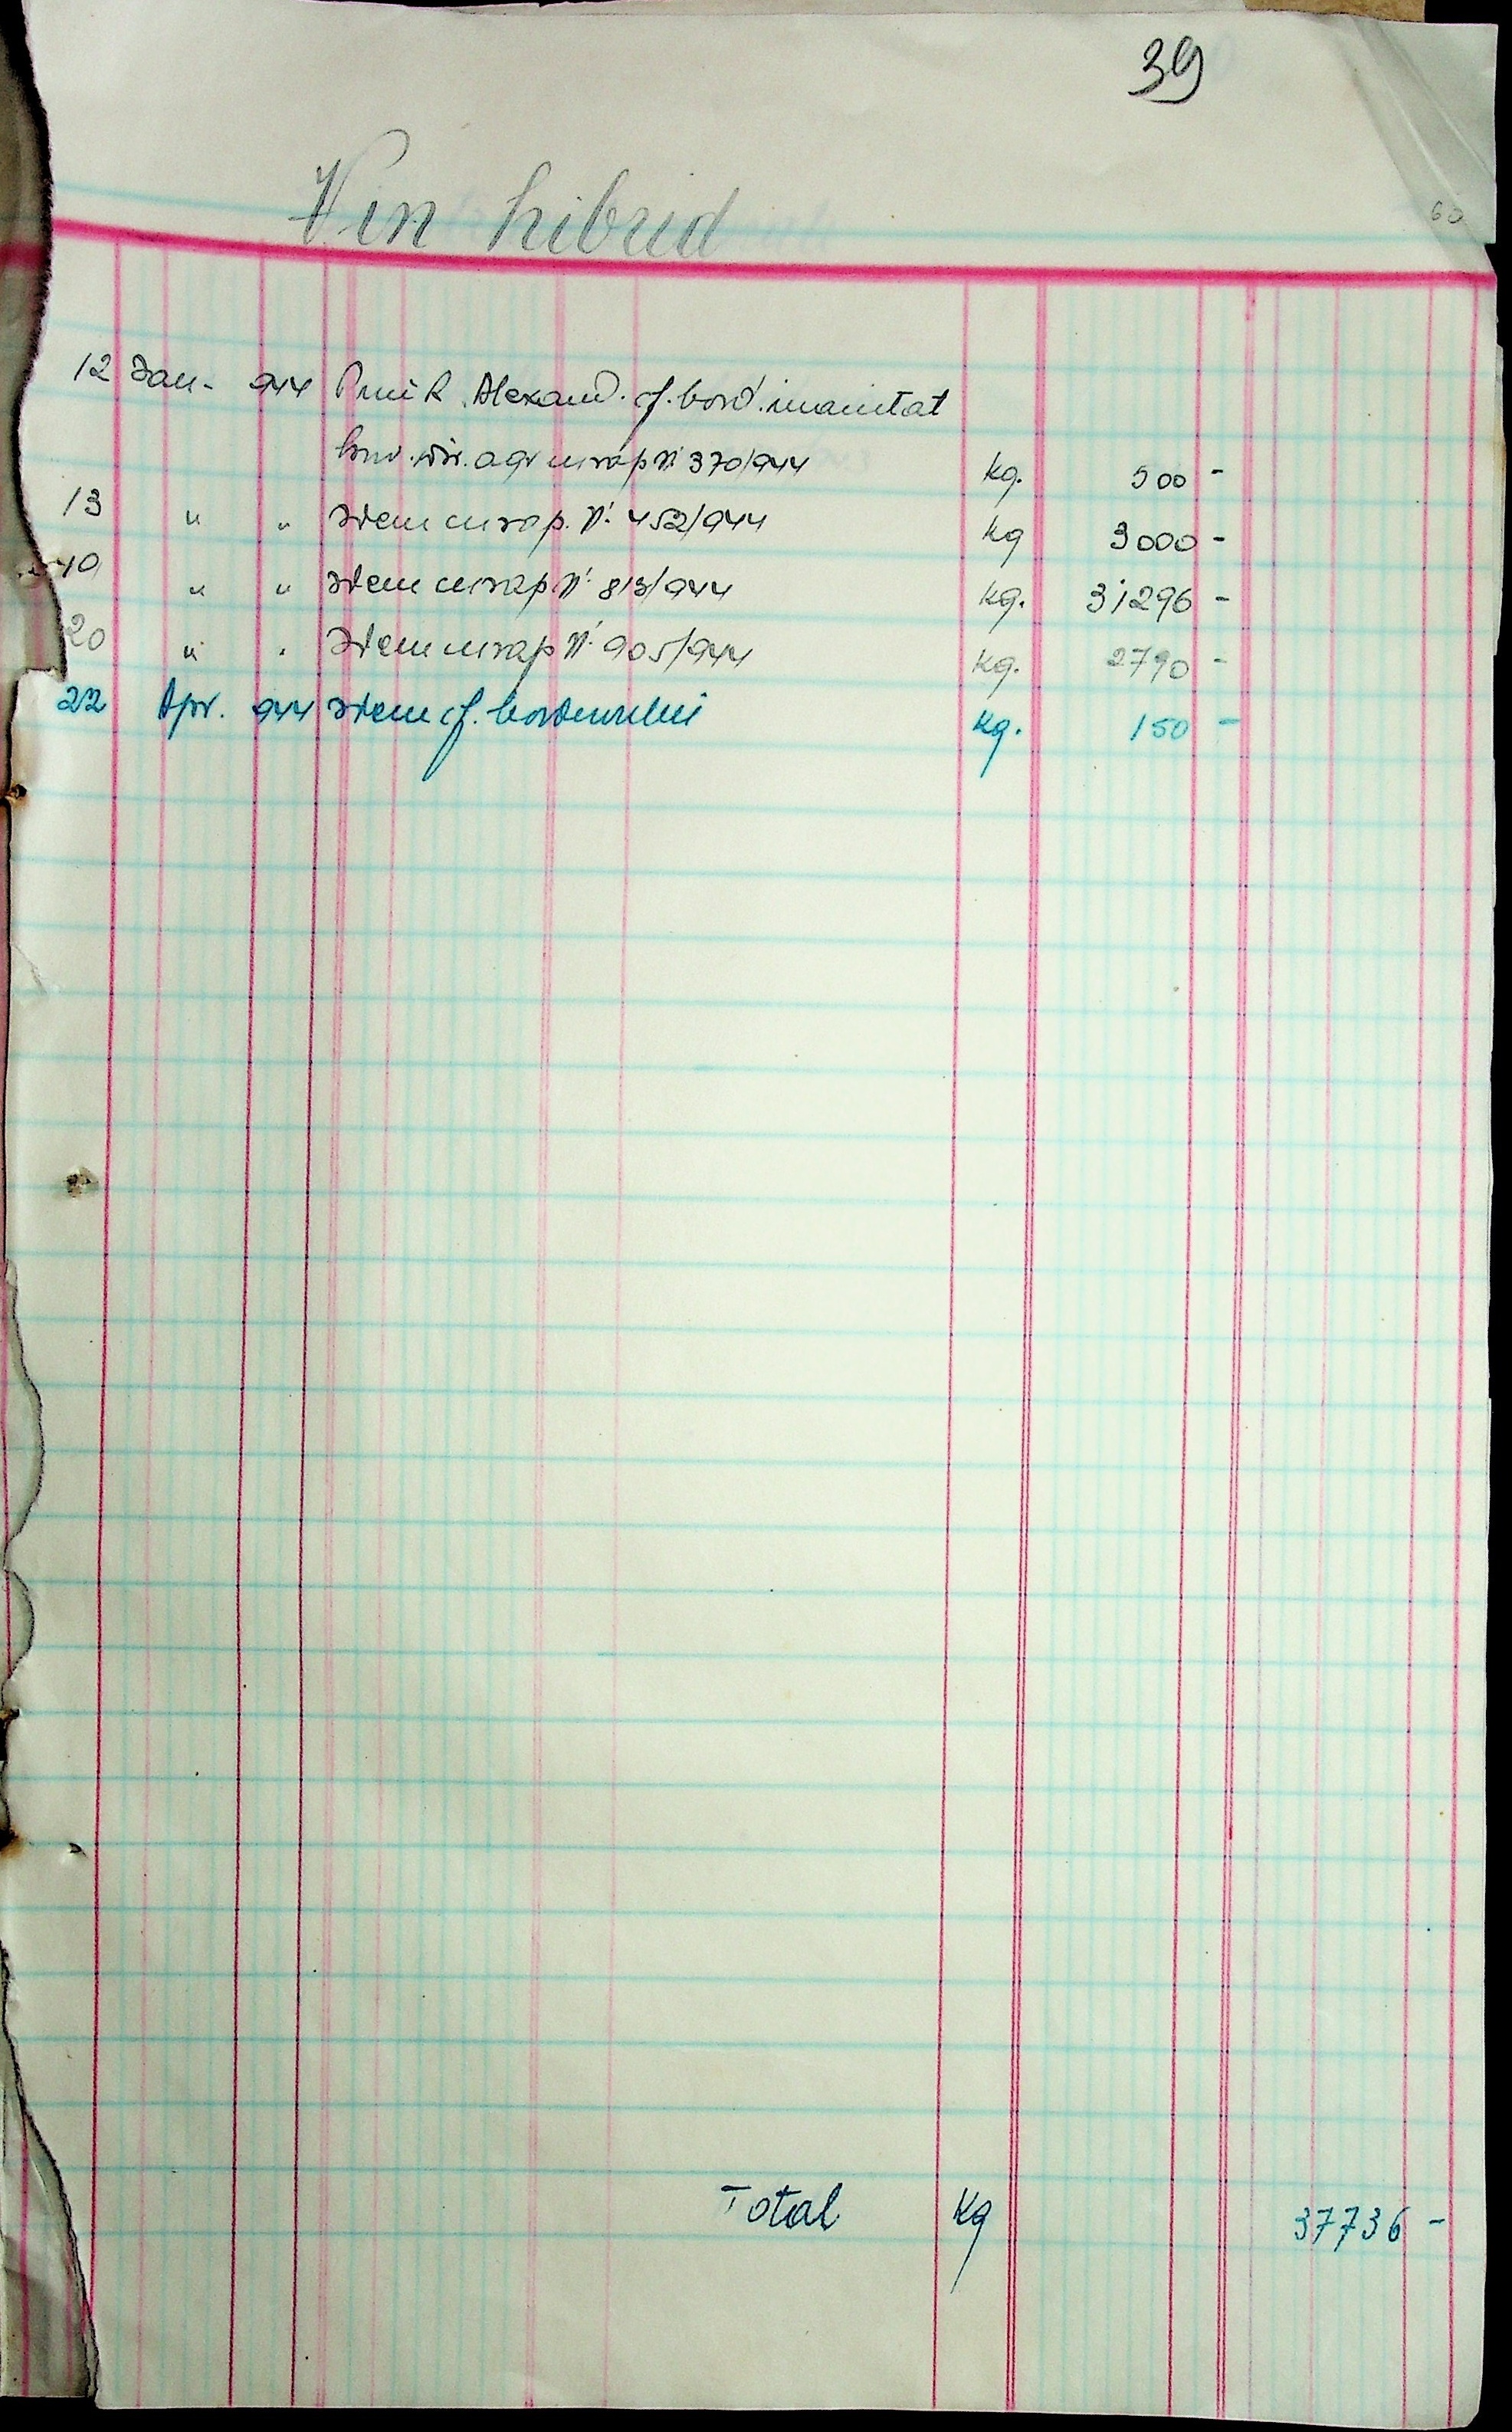 39
Vin hibrid
60
12 Ian - 944 Primit Alexand. cf. bord. inaintat
dir. agr cu rap Nº 370/944 kg. 500 -
13 " " Idem cu rap. Nº 452/944 kg 3000 -
" " Idem cu rap Nº 813/944 kg. 31296 -
20 " " Idem cu rap Nº 905/944 kg. 2790 -
22 Apr. 944 Idem cf. borderului kg. 150 -
Total Kg 37736 -